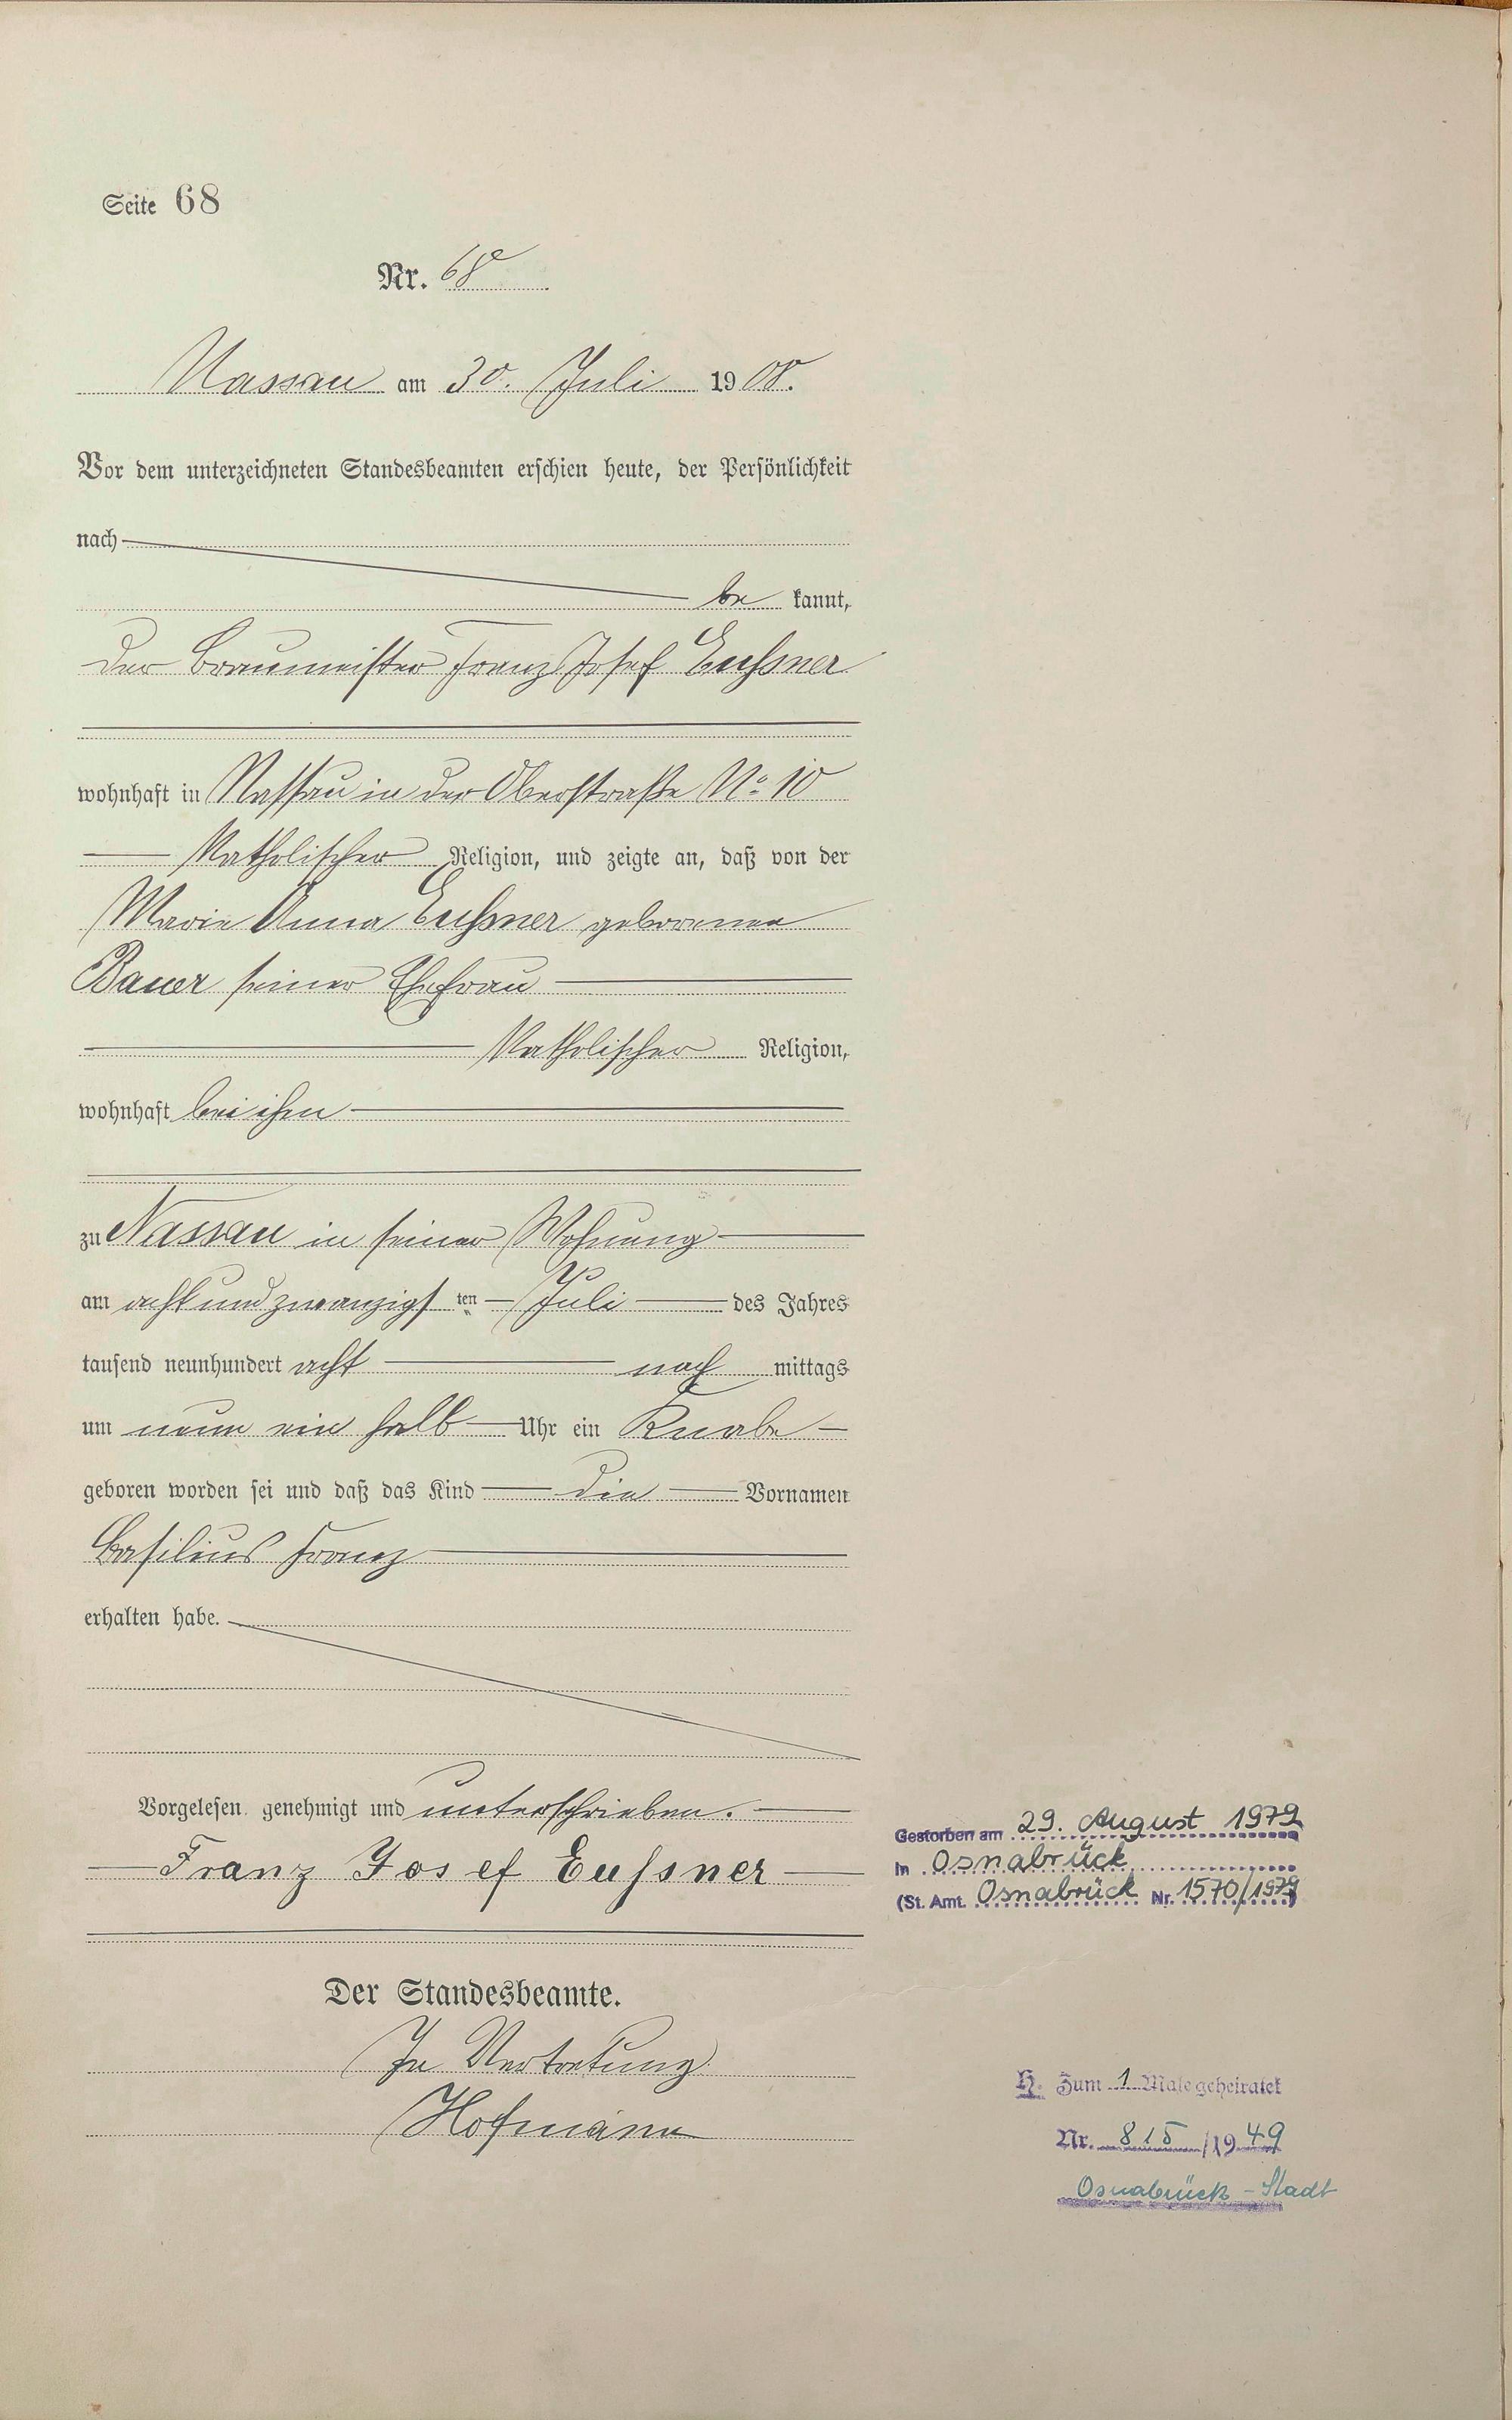 Seite 68
Nr. 68
Nassau am 30. Juli 1908.
Vor dem unterzeichneten Standesbeamten erschien heute, der Persönlichkeit
nach
be kannt,
der Braumeister Franz Josef Eußner
wohnhaft in Nassau in der Oberstraße No 10
Katholischer Religion, und zeigte an, daß von der
Marie Anna Eußner geborenen
Bauer seiner Ehefrau
Katholischer Religion,
wohnhaft bei ihm
zu Nassau in seiner Wohnung
am acht und zwanzigsten Juli des Jahres
tausend neunhundert acht nach mittags
um neun ein halb Uhr ein Knabe
geboren worden sei und daß das Kind die Vornamen
Basilius Franz
erhalten habe.
Vorgelesen, genehmigt und unterschrieben.
Franz Josef Eußner
Der Standesbeamte.
In Vertretung
Hofmann
Gestorben am 29. August 1979
in Osnabrück
(St. Amt. Osnabrück Nr. 1570/1979)
H. Zum 1 Male geheiratet
Nr. 815/1949
Osnabrück-Stadt